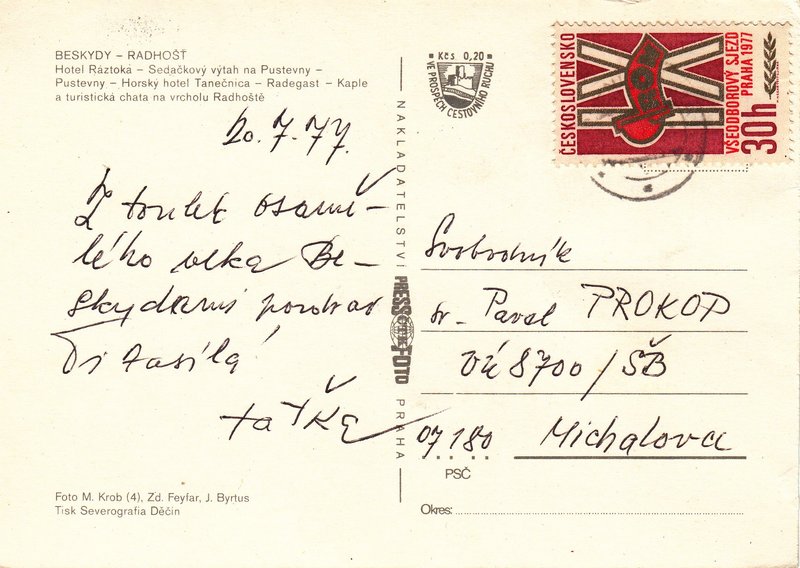 BESKYDY – RADHOŠŤ
Hotel Ráztoka – Sedačkový výtah na Pustevny –
Pustevny – Horský hotel Tanečnica – Radegast – Kaple
a turistická chata na vrcholu Radhoště
20.7.77.
Z toulek osamě-
lého vlka Be-
skydami pozdrav
Ti zasílá
taťka
Foto M. Krob (4), Zd. Feyfar, J. Byrtus
Tisk Severografia Děčín
NAKLADATELSTVÍ PRESSFOTO PRAHA
Kčs 0,20
VE PROSPĚCH CESTOVNÍHO RUCHU
ČESKOSLOVENSKO
VŠEODBOROVÝ SJEZD
PRAHA 1977
30h
Svobodník
Pavel PROKOP
VÚ 8700/ŠB
07180 Michalovce
PSČ
Okres: